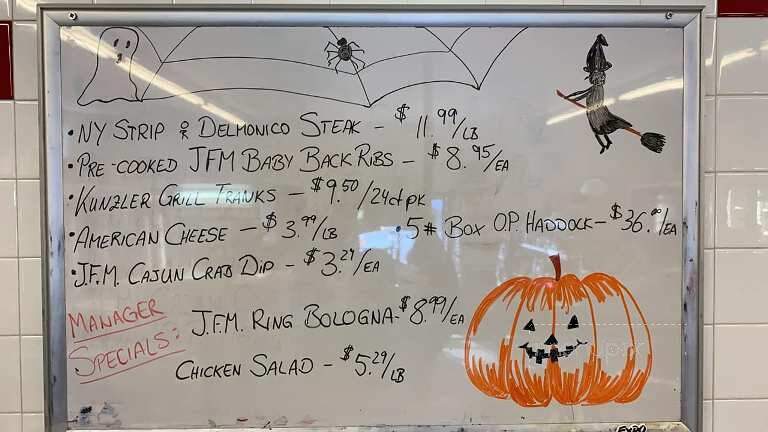 • NY STRIP OR DELMONICO STEAK – $11.99/LB
• PRE-COOKED JFM BABY BACK RIBS – $8.95/EA
• KUNZLER GRILL FRANKS – $9.50/24ct pk
• AMERICAN CHEESE – $3.99/LB • 5# BOX O.P. HADDOCK – $36.00/EA
• J.F.M. CAJUN CRAB DIP – $3.29/EA
MANAGER SPECIALS:
J.F.M. RING BOLOGNA – $8.99/EA
CHICKEN SALAD – $5.29/LB
EXPO